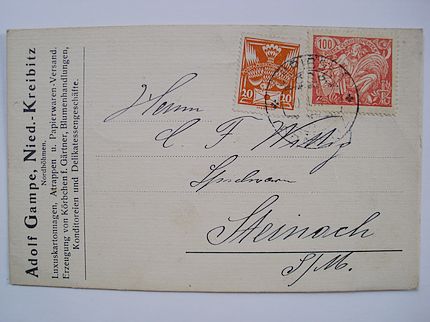 Adolf Gampe, Nied.-Kreibitz
Nordböhmen.
Luxuskartonnagen, Atrappen u. Papierwaren-Versand.
Erzeugung von Körbchen f. Gärtner, Blumenhandlungen,
Konditoreien und Delikatessengeschäfte.
20 20
100
Herrn
C. F. Wittig
Steinach
S/M.